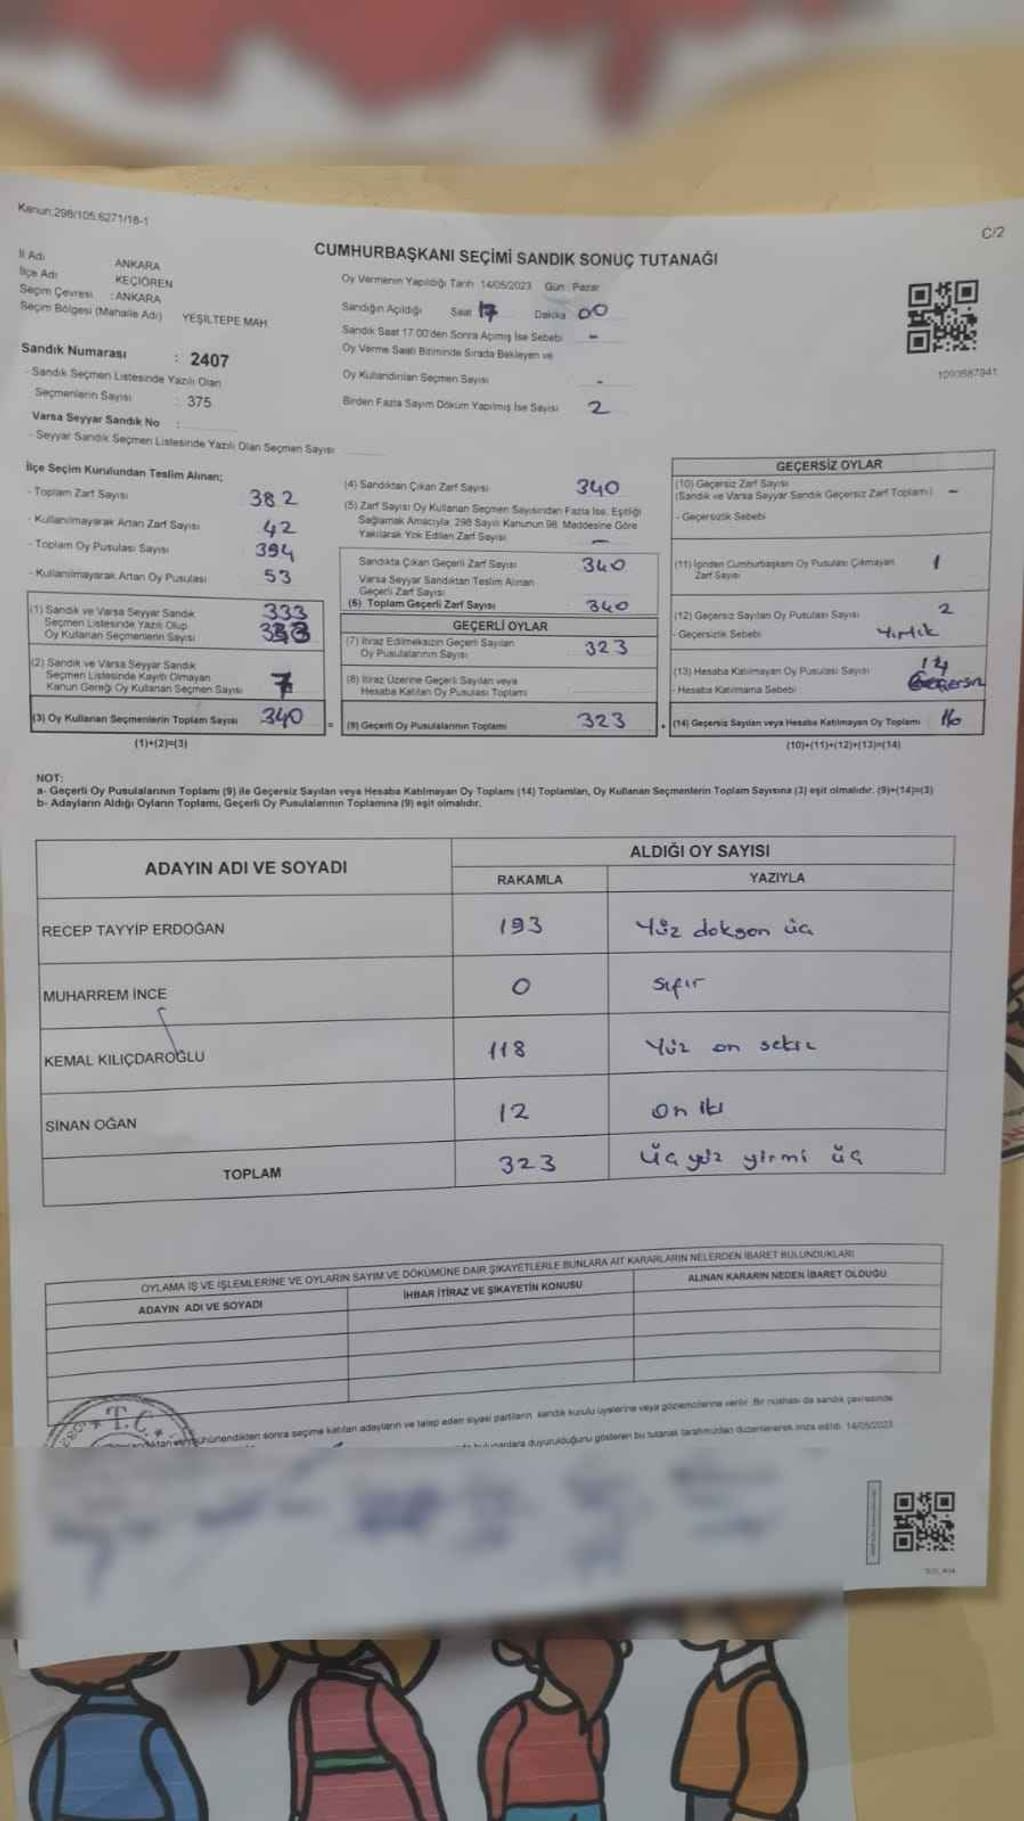 Kanun:298/105.6271/18-1
C/2
CUMHURBAŞKANI SEÇİMİ SANDIK SONUÇ TUTANAĞI
İl Adı ANKARA
İlçe Adı KEÇİÖREN
Seçim Çevresi : ANKARA
Seçim Bölgesi (Mahalle Adı) YEŞİLTEPE MAH.
Sandık Numarası : 2407
- Sandık Seçmen Listesinde Yazılı Olan
Seçmenlerin Sayısı : 375
Varsa Seyyar Sandık No :
- Seyyar Sandık Seçmen Listesinde Yazılı Olan Seçmen Sayısı
Oy Vermenin Yapıldığı Tarih 14/05/2023 Gün : Pazar
Sandığın Açıldığı Saat 17 Dakika 00
Sandık Saat 17.00'den Sonra Açımış İse Sebebi -
Oy Verme Saati Bitiminde Sırada Bekleyen ve
Oy Kullandırılan Seçmen Sayısı -
Birden Fazla Sayım Döküm Yapılmış İse Sayısı 2
1093587941
İlçe Seçim Kurulundan Teslim Alınan;
- Toplam Zarf Sayısı 382
- Kullanılmayarak Artan Zarf Sayısı 42
- Toplam Oy Pusulası Sayısı 394
- Kullanılmayarak Artan Oy Pusulası 53
(1) Sandık ve Varsa Seyyar Sandık 333
Seçmen Listesinde Yazılı Olup
Oy Kullanan Seçmenlerin Sayısı
(2) Sandık ve Varsa Seyyar Sandık
Seçmen Listesinde Kayıtlı Olmayan
Kanun Gereği Oy Kullanan Seçmen Sayısı 7
(3) Oy Kullanan Seçmenlerin Toplam Sayısı 340
(1)+(2)=(3)
(4) Sandıktan Çıkan Zarf Sayısı 340
(5) Zarf Sayısı Oy Kullanan Seçmen Sayısından Fazla İse, Eşitliği
Sağlamak Amacıyla, 298 Sayılı Kanunun 98. Maddesine Göre
Yakılarak Yok Edilen Zarf Sayısı -
Sandıkta Çıkan Geçerli Zarf Sayısı 340
Varsa Seyyar Sandıktan Teslim Alınan
Geçerli Zarf Sayısı
(6) Toplam Geçerli Zarf Sayısı 340
GEÇERLİ OYLAR
(7) İtiraz Edilmeksizin Geçerli Sayılan
Oy Pusulalarının Sayısı 323
(8) İtiraz Üzerine Geçerli Sayılan veya
Hesaba Katılan Oy Pusulası Toplamı
= (9) Geçerli Oy Pusulalarının Toplamı 323
GEÇERSİZ OYLAR
(10) Geçersiz Zarf Sayısı
(Sandık ve Varsa Seyyar Sandık Geçersiz Zarf Toplamı) -
- Geçersizlik Sebebi
(11) İçinden Cumhurbaşkanı Oy Pusulası Çıkmayan
Zarf Sayısı 1
(12) Geçersiz Sayılan Oy Pusulası Sayısı 2
- Geçersizlik Sebebi Yırtık
(13) Hesaba Katılmayan Oy Pusulası Sayısı 14
- Hesaba Katılmama Sebebi Geçersiz
+ (14) Geçersiz Sayılan veya Hesaba Katılmayan Oy Toplamı 16
(10)+(11)+(12)+(13)=(14)
NOT:
a- Geçerli Oy Pusulalarının Toplamı (9) ile Geçersiz Sayılan veya Hesaba Katılmayan Oy Toplamı (14) Toplamları, Oy Kullanan Seçmenlerin Toplam Sayısına (3) eşit olmalıdır. (9)+(14)=(3)
b- Adayların Aldığı Oyların Toplamı, Geçerli Oy Pusulalarının Toplamına (9) eşit olmalıdır.
ADAYIN ADI VE SOYADI ALDIĞI OY SAYISI
RAKAMLA YAZIYLA
RECEP TAYYİP ERDOĞAN 193 Yüz doksan üç
MUHARREM İNCE 0 sıfır
KEMAL KILIÇDAROĞLU 118 Yüz on sekiz
SİNAN OĞAN 12 on iki
TOPLAM 323 üçyüz yirmi üç
OYLAMA İŞ VE İŞLEMLERİNE VE OYLARIN SAYIM VE DÖKÜMÜNE DAİR ŞİKAYETLERLE BUNLARA AİT KARARLARIN NELERDEN İBARET BULUNDUKLARI
ADAYIN ADI VE SOYADI İHBAR İTİRAZ VE ŞİKAYETİN KONUSU ALINAN KARARIN NEDEN İBARET OLDUĞU
T.C.
sonra seçime katılan adayların ve talep eden siyasi partilerin sandık kurulu üyelerine veya gözlemcilerine verilir. Bir nüshası da sandık çevresinde
duyurulduğunu gösteren bu tutanak tarafımızdan düzenlenerek imza edildi. 14/05/2023